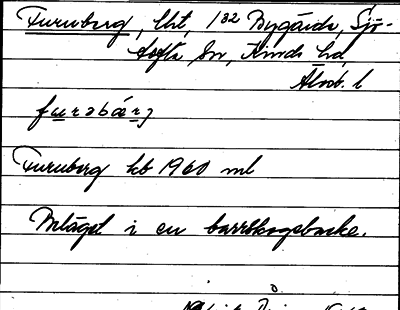 Furuberg, lht, 1³² Bygärde, Sjö-
tofta sn, Kinds hd,
Älvsb. l
Furuberg kb 1960 ml
Belägd i en barrskogsbacke.